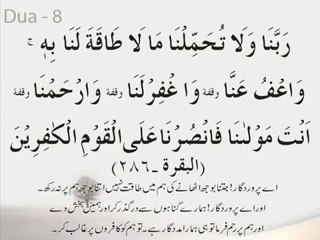 Dua - 8
رَبَّنَا وَلَا تُحَمِّلْنَا مَا لَا طَاقَةَ لَنَا بِهٖ ۚ
وَاعْفُ عَنَّا وقفة وَاغْفِرْلَنَا وقفة وَارْحَمْنَا وقفة
اَنْتَ مَوْلٰىنَا فَانْصُرْنَا عَلَى الْقَوْمِ الْكٰفِرِيْنَ
(البقرة ـ ۲۸۶)
اے پروردگار! جتنا بوجھ اٹھانے کی ہم میں طاقت نہیں اتنا بوجھ ہم پر نہ رکھ۔
اور اے پروردگار! ہمارے گناہوں سے درگذر کر اور ہمیں بخش دے
اور ہم پر رحم فرما تو ہی ہمارا مددگار ہے۔ تو ہم کو کافروں پر غالب کر۔